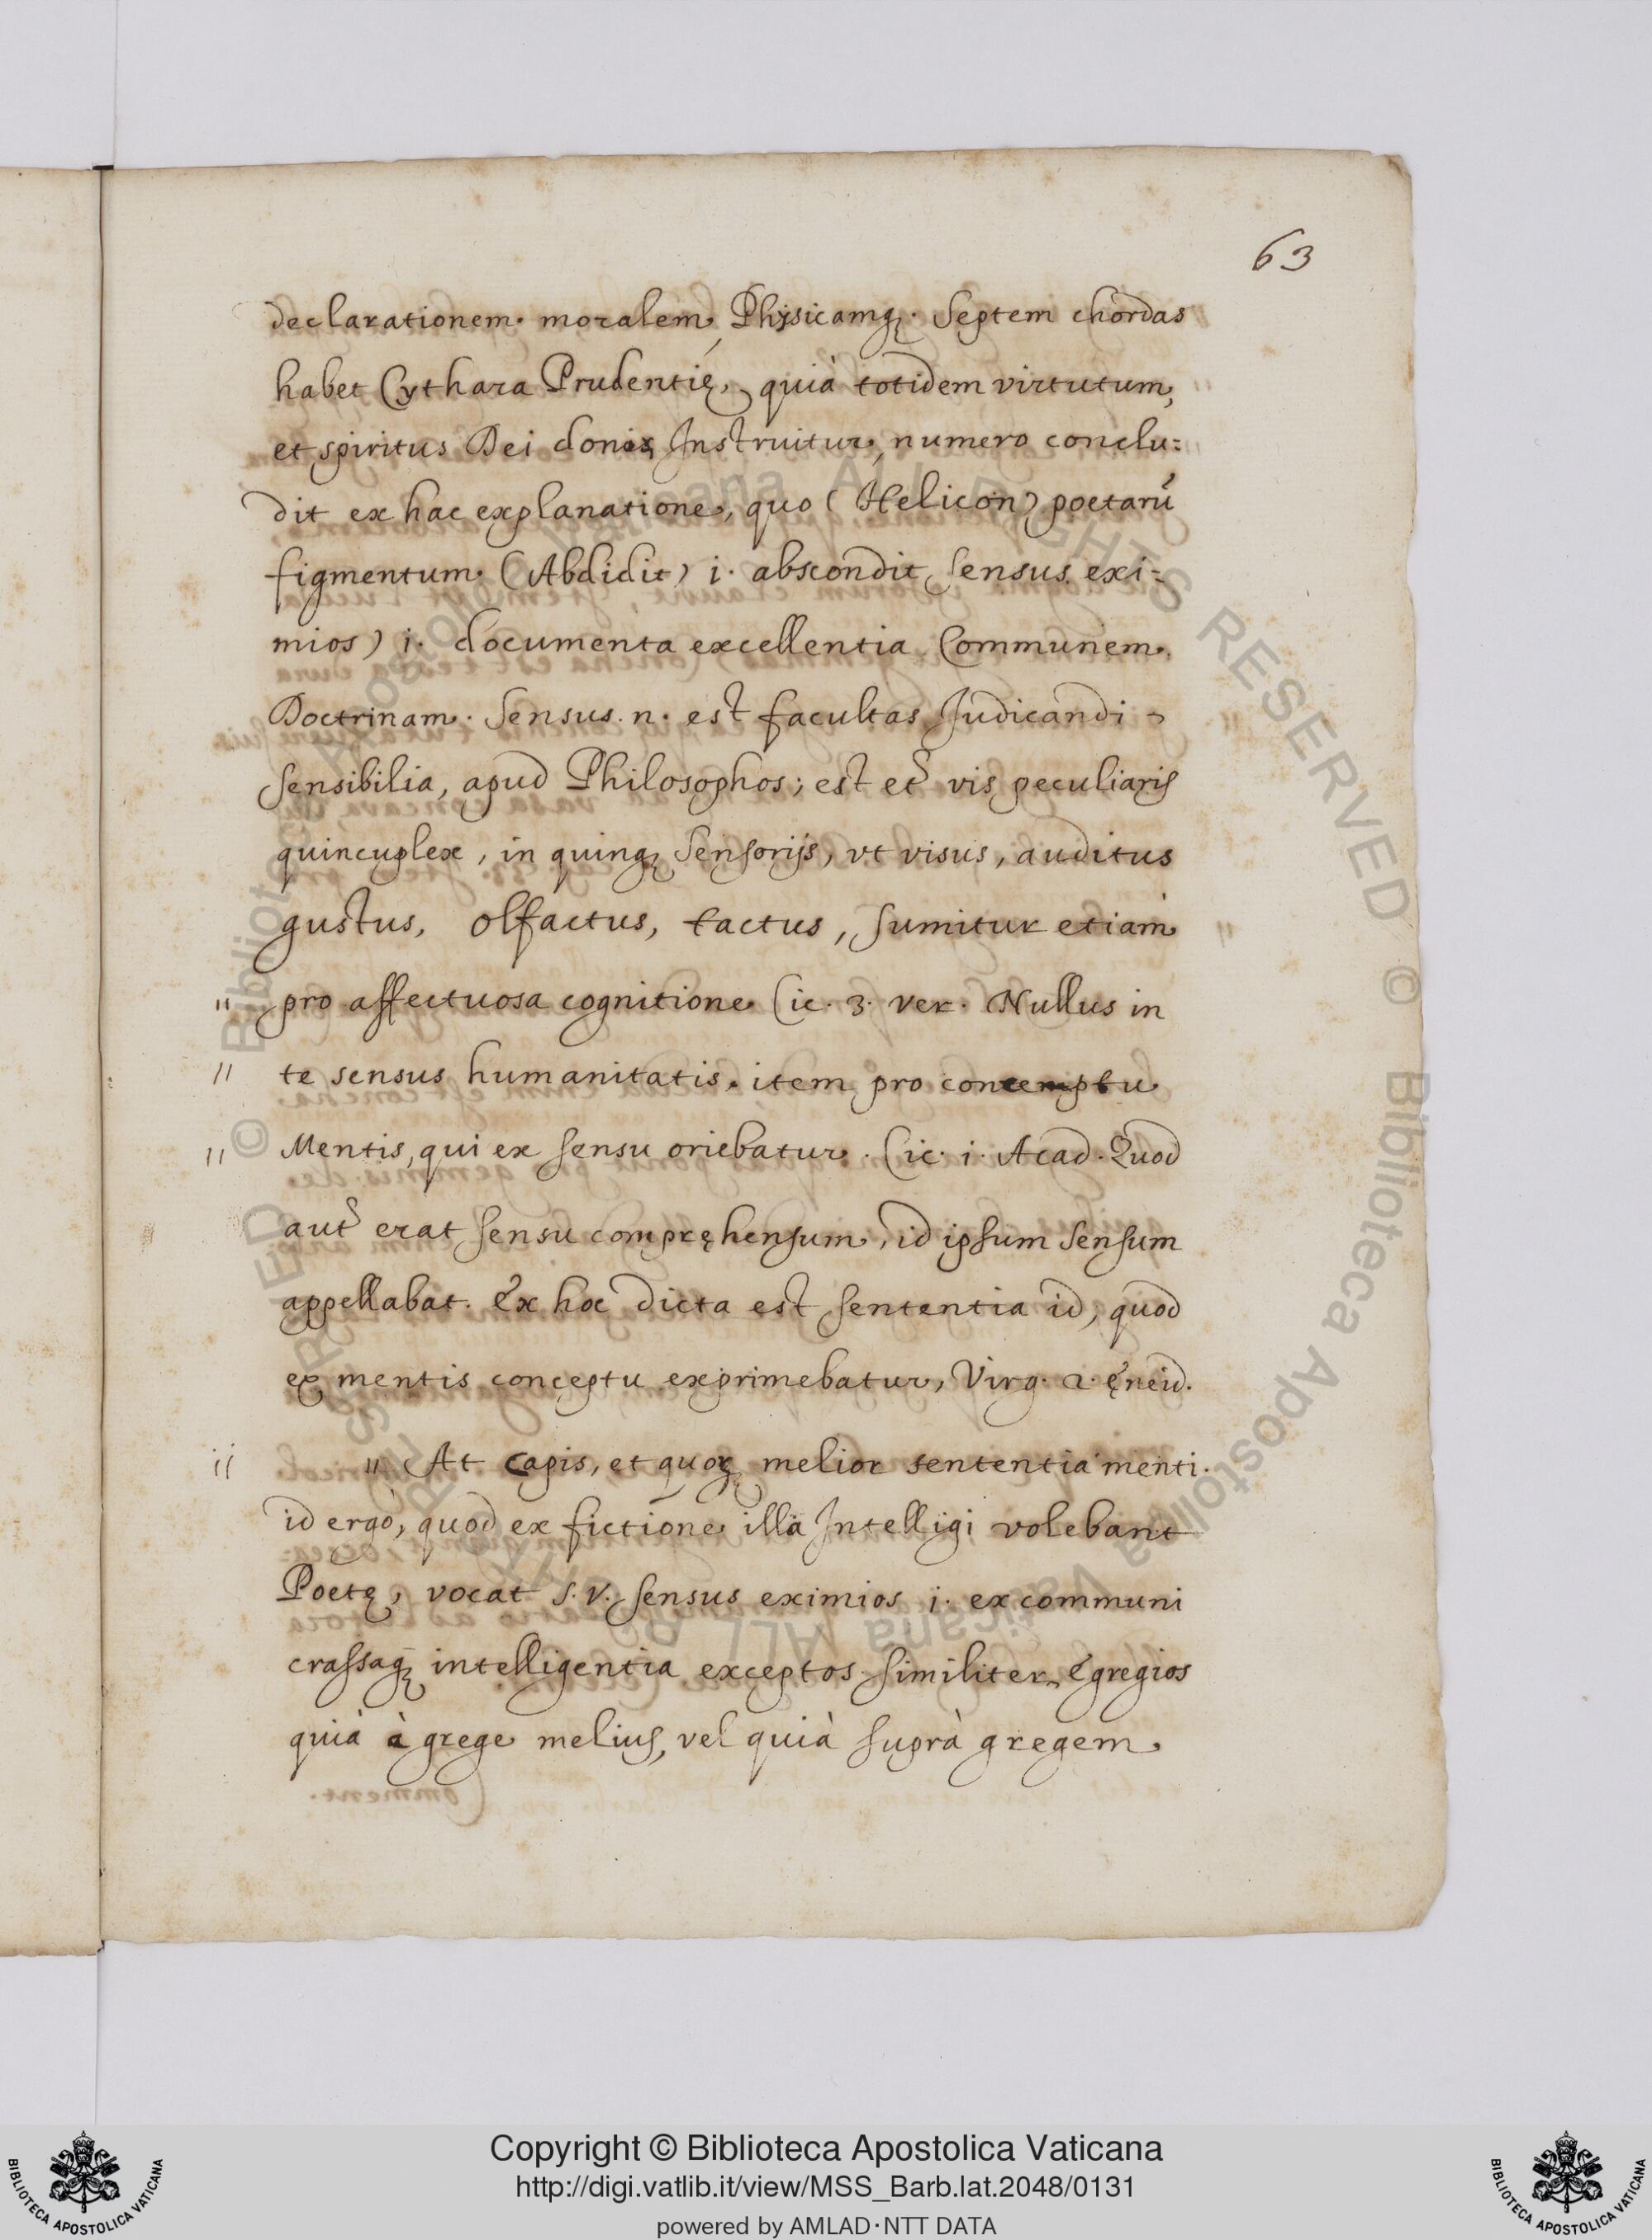 63
declarationem moralem, Physicamq;. Septem chordas
habet Cythara Prudentię, quià totidem virtutum,
et spiritus Dei donis Instruitur, numero conclu:
dit ex hac explanatione, quo (Helicon) poetarū
figmentum (Abdidit) i. abscondit sensus exi:
mios) i. documenta excellentia Communem
Doctrinam. Sensus. n. est facultas Judicandi
sensibilia, apud Philosophos; est et̃ vis peculiaris
quincuplex, in quinq; sensorijs, vt visus, auditus
gustus, olfactus, tactus, sumitur etiam
" pro affectuosa cognitione Cic. 3. ver. Nullus in
" te sensus humanitatis. item pro contemptu
" Mentis, qui ex sensu oriebatur. Cic. i. Acad. Quod
aut̃ erat sensu compręhensum, id ipsum sensum
appellabat. Ex hoc dicta est sententia id, quod
ex mentis conceptu exprimebatur, Virg. 2. ęneid.
" " At Capis, et quorq melior sententia menti.
id ergò, quod ex fictione illa Intelligi volebant
Poetę, vocat S. V. sensus eximios i. ex communi
crassaq; intelligentia exceptos similiter egregios
quià à grege melius, vel quià suprà gregem
Copyright © Biblioteca Apostolica Vaticana
http://digi.vatlib.it/view/MSS_Barb.lat.2048/0131
powered by AMLAD·NTT DATA
BIBLIOTECA APOSTOLICA VATICANA
BIBLIOTECA APOSTOLICA VATICANA